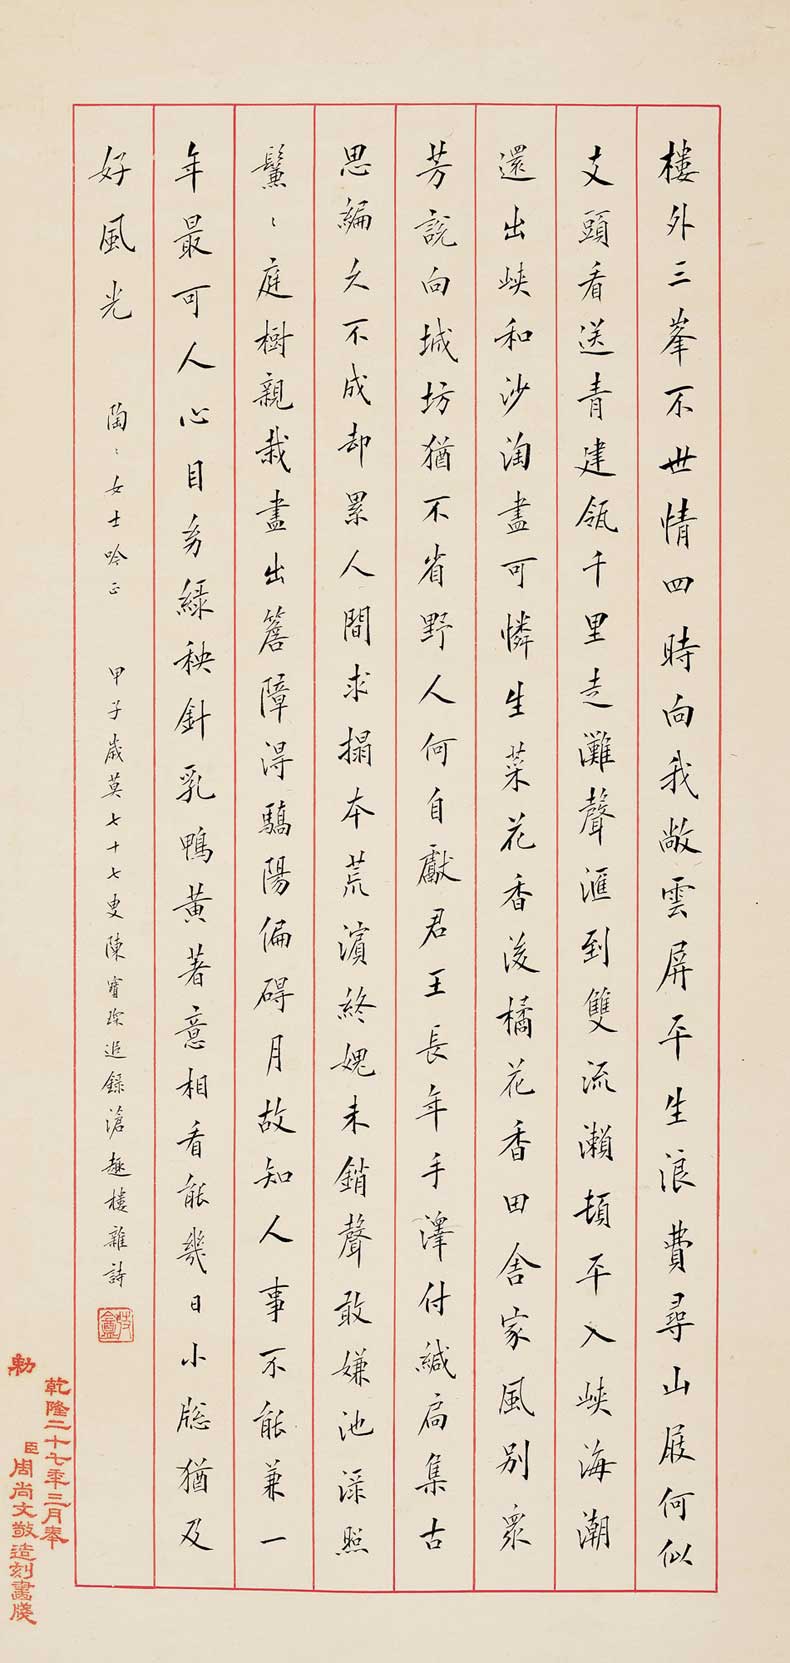 樓外三峯不世情四時向我敞雲屏平生浪費尋山屐何似
支頭看送青建瓴千里走灘聲滙到雙流瀨頓平入峽海潮
還出峽和沙淘盡可憐生菜花香後橘花香田舍家風別衆
芳說向城坊猶不省野人何自獻君王長年手澤付緘扄集古
思編久不成却累人間求搨本荒濱終媿未銷聲敢嫌池淥照
鬑〻庭樹親栽盡出簷障得驕陽偏碍月故知人事不能兼一
年最可人心目多綠秧針乳鴨黃著意相看能幾日小牕猶及
好風光
陶〻女士吟正
甲子歲莫七十七叟陳寶琛追錄滄趣樓雜詩
乾隆二十七年三月奉
勅
臣周尚文敬造刻畫牋